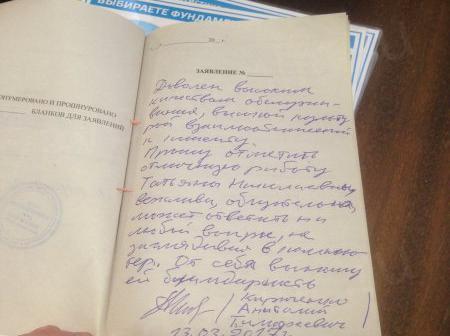 ВЫБИРАЕТЕ ФУНДАМ
20 г.
ЗАЯВЛЕНИЕ № ______
ОНУМЕРОВАНО И ПРОШНУРОВАНО
БЛАНКОВ ДЛЯ ЗАЯВЛЕНИЙ)
Доволен высоким
качеством обслужи-
вания, высокой культу
рой взаимоотношений
к клиенту.
Прошу отметить
отличную работу
Татьяны Николаевны,
вежлива, общительна,
может ответить на
любой вопрос, не
заглядывая в компью-
тер. От себя выношу
ей благодарность
/ Кириченко
Анатолий
Тимофеевич
13.03.2017г.